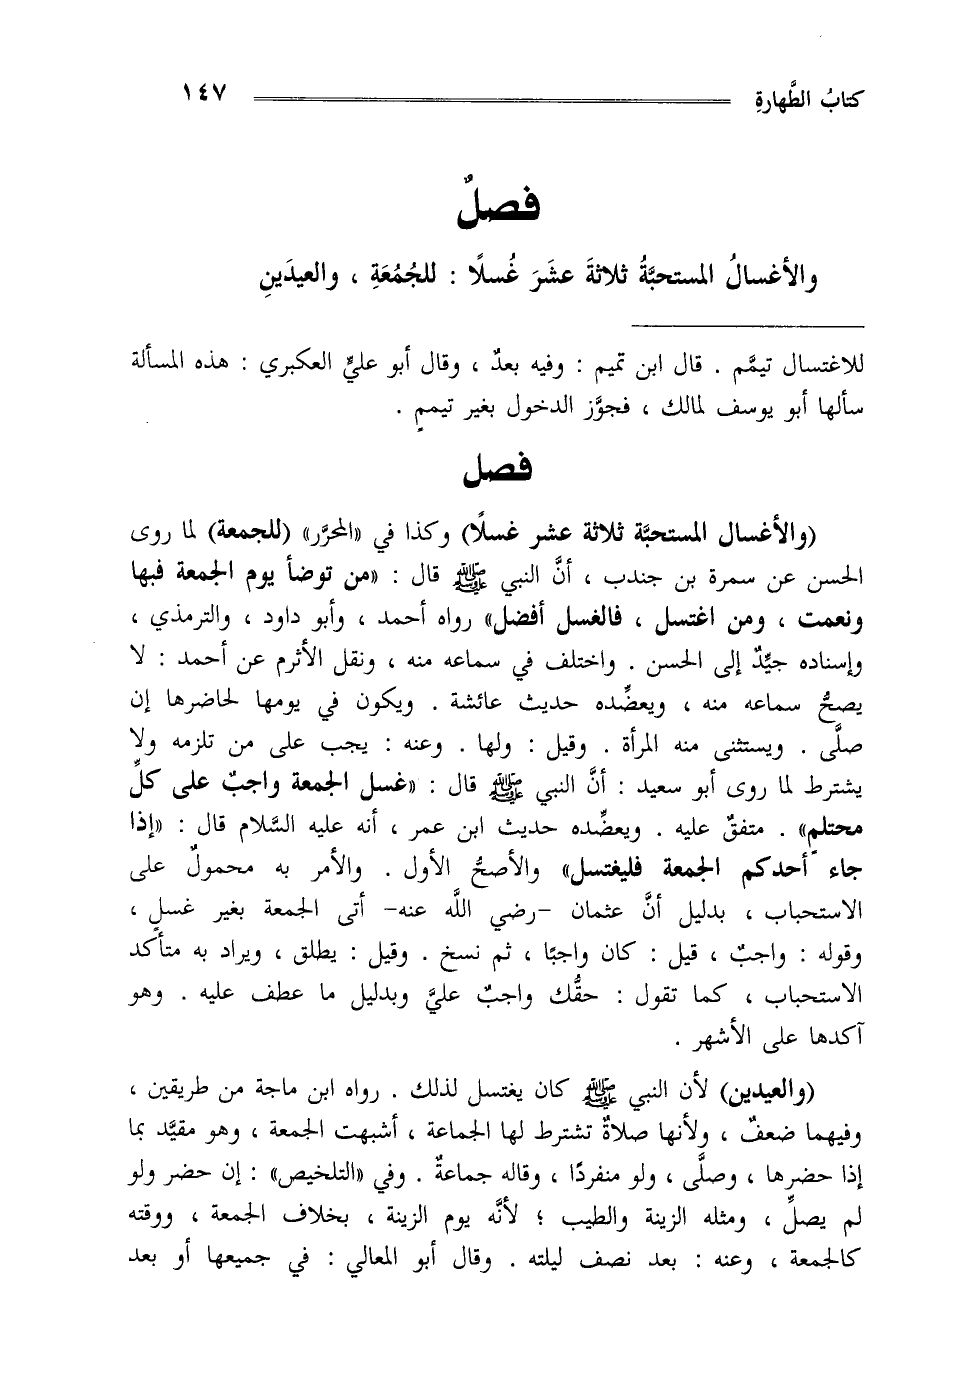 كتابُ الطَّهارةِ ١٤٧
فصلٌ
والأغسالُ المستحبَّةُ ثلاثةَ عشَرَ غُسلًا : للجُمُعَةِ ، والعيدَينِ
للاغتسال تيمَّم . قال ابن تميم : وفيه بعدٌ ، وقال أبو عليٍّ العكبري : هذه المسألة
سألها أبو يوسف لمالك ، فجوَّز الدخول بغير تيممٍ .
فصل
(والأغسال المستحبَّة ثلاثة عشر غسلًا) وكذا في «المحرَّر» (للجمعة) لما روى
الحسن عن سمرة بن جندب ، أنَّ النبي ﷺ قال : «من توضأ يوم الجمعة فبها
ونعمت ، ومن اغتسل ، فالغسل أفضل» رواه أحمد ، وأبو داود ، والترمذي ،
وإسناده جيِّدٌ إلى الحسن . واختلف في سماعه منه ، ونقل الأثرم عن أحمد : لا
يصحُّ سماعه منه ، ويعضِّده حديث عائشة . ويكون في يومها لحاضرها إن
صلَّى . ويستثنى منه المرأة . وقيل : ولها . وعنه : يجب على من تلزمه ولا
يشترط لما روى أبو سعيد : أنَّ النبي ﷺ قال : «غسل الجمعة واجبٌ على كلِّ
محتلمٍ» . متفقٌ عليه . ويعضِّده حديث ابن عمر ، أنه عليه السَّلام قال : «إذا
جاء أحدكم الجمعة فليغتسل» والأصحُّ الأول . والأمر به محمولٌ على
الاستحباب ، بدليل أنَّ عثمان -رضي اللَّه عنه- أتى الجمعة بغير غسلٍ ،
وقوله : واجبٌ ، قيل : كان واجبًا ، ثم نسخ . وقيل : يطلق ، ويراد به متأكد
الاستحباب ، كما تقول : حقُّك واجبٌ عليَّ وبدليل ما عطف عليه . وهو
آكدها على الأشهر .
(والعيدين) لأن النبي ﷺ كان يغتسل لذلك . رواه ابن ماجة من طريقين ،
وفيهما ضعفٌ ، ولأنها صلاةٌ تشترط لها الجماعة ، أشبهت الجمعة ، وهو مقيَّد بما
إذا حضرها ، وصلَّى ، ولو منفردًا ، وقاله جماعةٌ . وفي «التلخيص» : إن حضر ولو
لم يصلِّ ، ومثله الزينة والطيب ؛ لأنَّه يوم الزينة ، بخلاف الجمعة ، ووقته
كالجمعة ، وعنه : بعد نصف ليلته . وقال أبو المعالي : في جميعها أو بعد